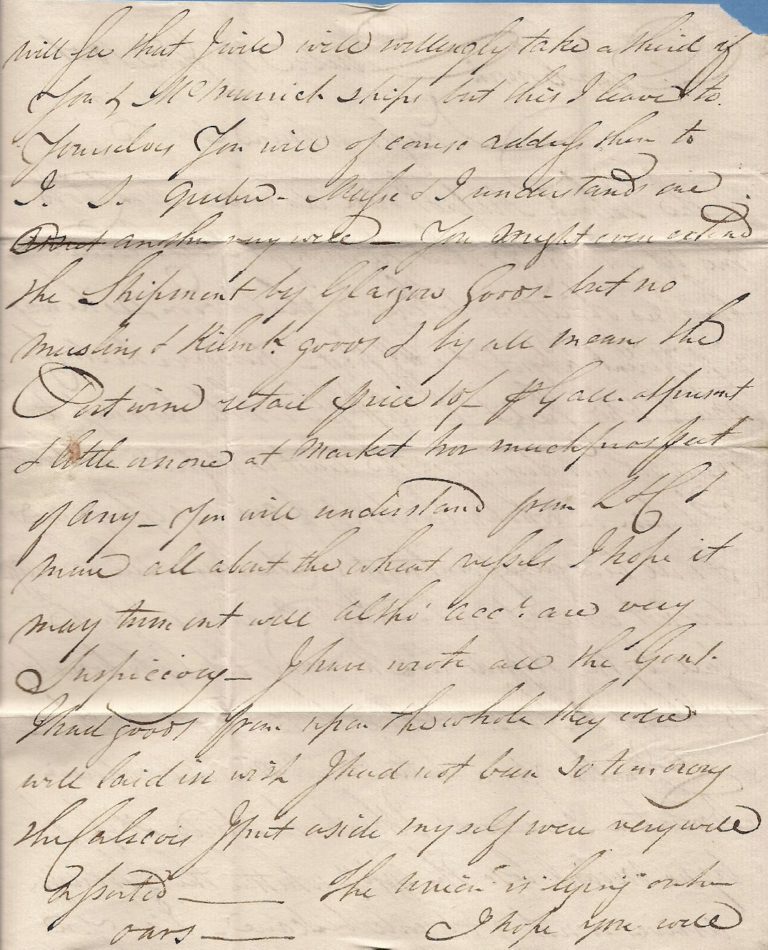 will see that I will will willingly take a third if
You & McMurrick ships but this I leave to
Yourselves You will of course address them to
I. S. Quebec - & I understands one
another very well - You might even extend
the Shipment by Glasgow Goods - but no
muslins & Kilmk. goods & by all means the
Port wine retail price 10/- Gall. at present
& little or none at Market nor much prospect
of any - You will understand from &
mine all about the wheat vessels I hope it
may turn out well altho' acct. are very
Suspicious - I have wrote all the Gent.
I had goods from upon the whole they were
will laid in wish I had not been so timorous
the Calicois I put aside myself were very well
assorted ——— The Union is lying on her
oars ——— I hope you will